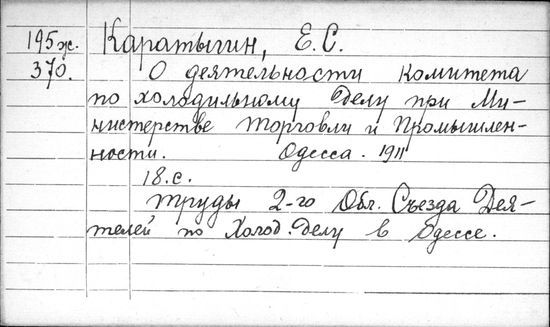 195ж. Каратыгин, Е.С.
370. О деятельности Комитета
по холодильному Делу при Ми-
нистерстве Торговли и Промышлен-
ности. Одесса. 1911
18.с.
Труды 2-го Обл. Съезда Дея-
телей по Холод. Делу в Одессе.